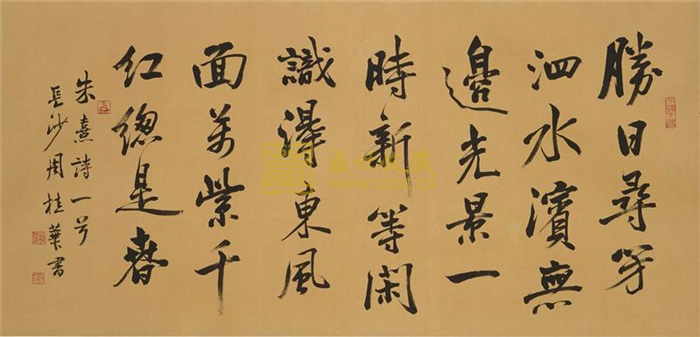 勝日尋芳
泗水濱無
邊光景一
時新等閑
識得東風
面萬紫千
紅總是春
朱熹詩一首
長沙周桂華書